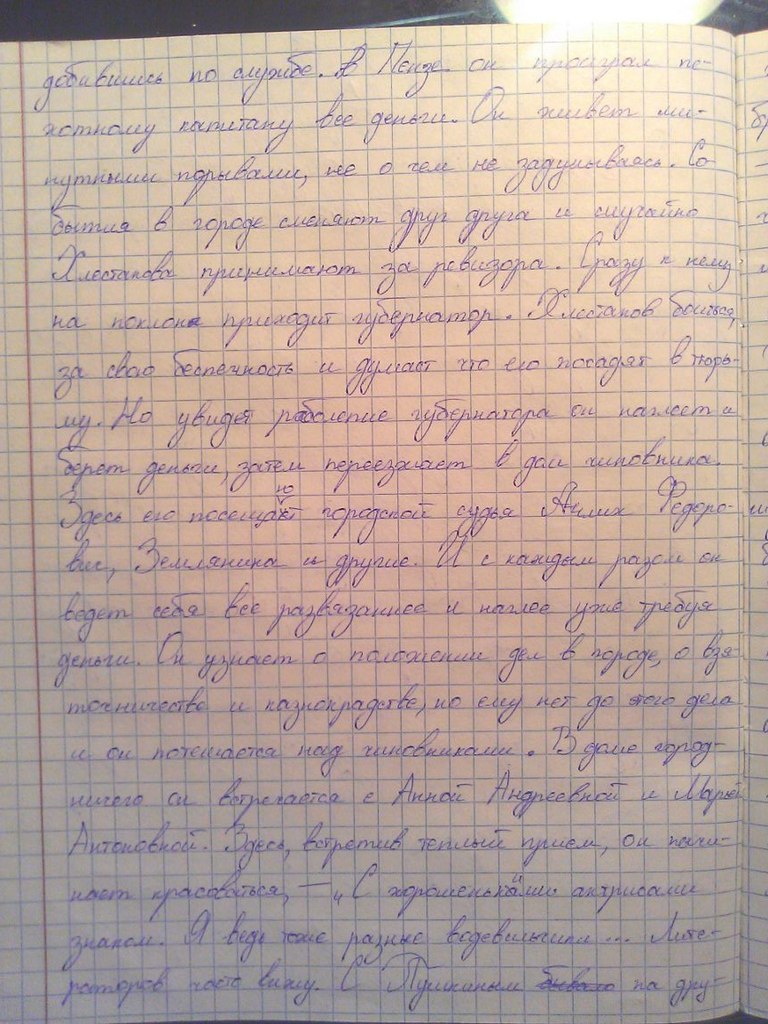 добившись по службе. В Пензе он проиграл пе-
хотному капитану все деньги. Он живет ми-
нутными порывами, не о чем не задумываясь. Со
бытия в городе сменяют друг друга и случайно
Хлестакова принимают за ревизора. Сразу к нему
на поклон приходит губернатор. Хлестаков боиться,
за свою беспечность и думает что его посадят в тюрь-
му. Но увидет раболепие губернатора он наглеет и
берет деньги, затем переезжает в дом чиновника.
Здесь его посещают городской судья Федоро-
вич, Земляника и другие. И с каждым разом он
ведет себя все развязаннее и наглее уже требуя
деньги. Он узнает о положении дел в городе, о взя-
точничестве и казнокрадстве, но ему нет до этого дела
и он потешается над чиновниками. В доме город-
ничего он встречается с Анной Андреевной и Марьей
Антоновной. Здесь, встретив теплый прием, он начи-
нает красоваться, — „С хорошенькими актрисами
знаком. Я ведь тоже разные водевильчики... Лите-
раторов часто вижу. С Пушкиным на дру-